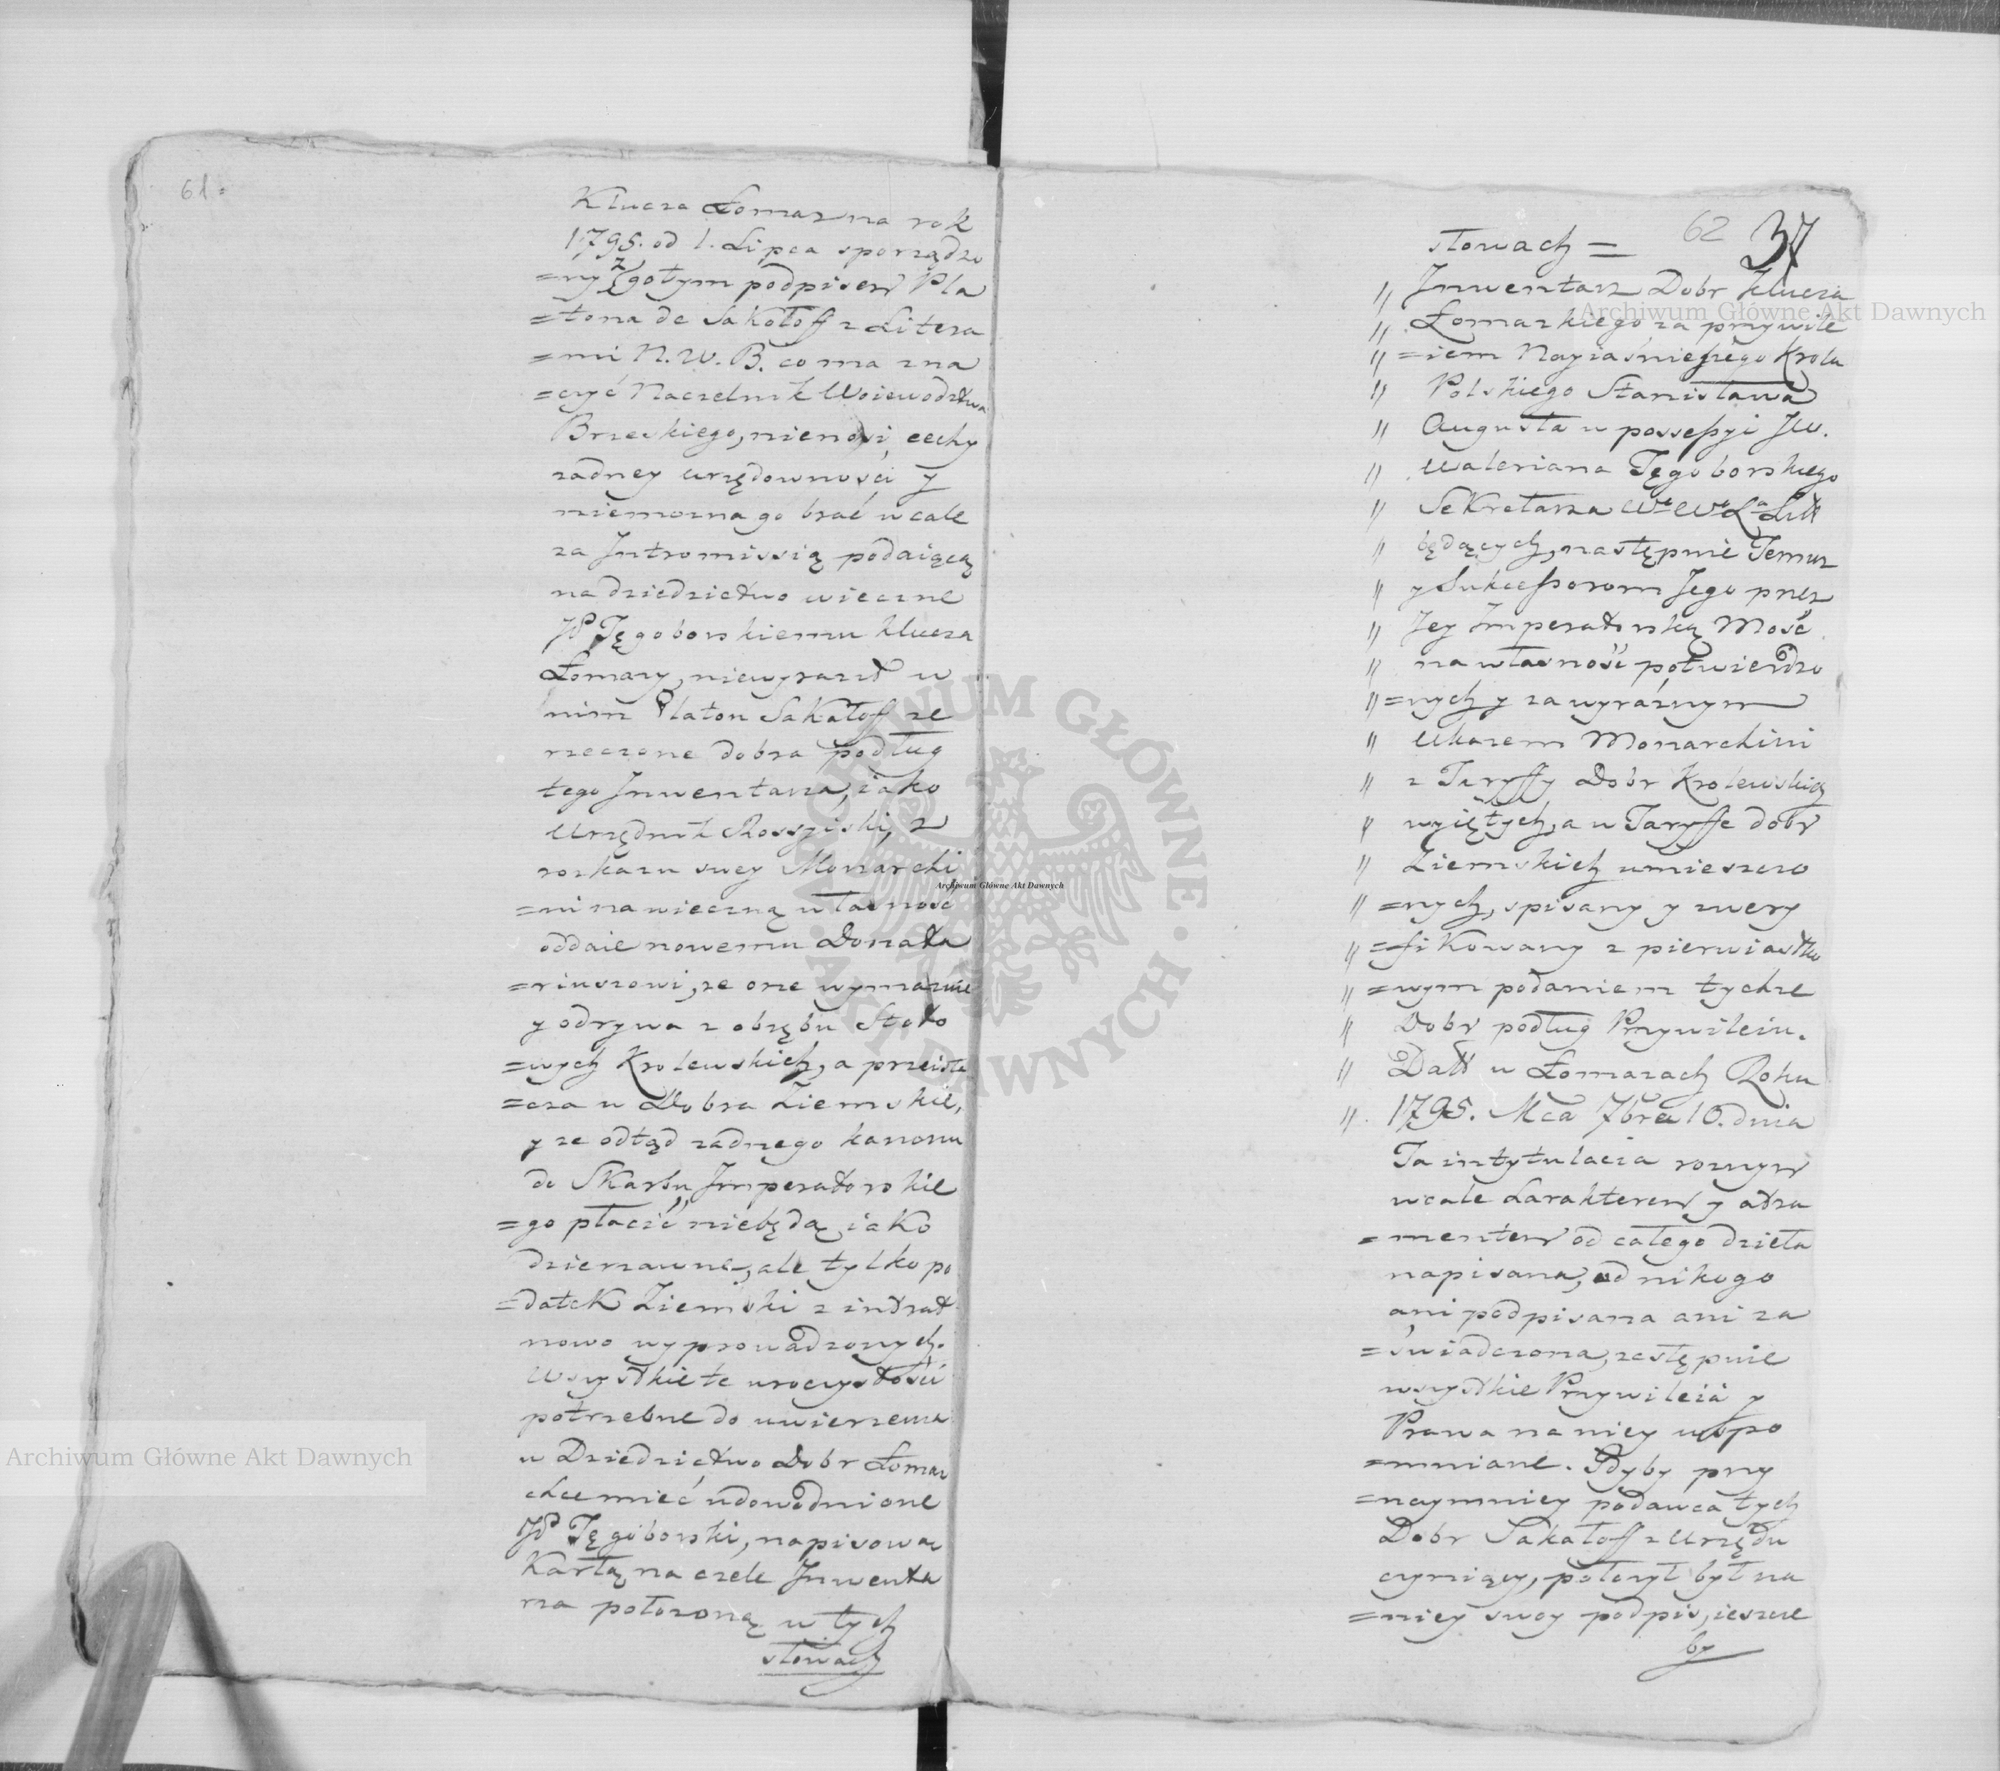 61.
Klucza Łomaz na rok
1795. od 1. Lipca sporządzo
=ny z gołym podpisem Pla
=tona de Sakołoff z Litera
=mi N. W. B. co ma zna
=czyć Naczelnik Woiewodztwa
Brzeskiego, nienosi cechy
żadney urzędowności y
niemożna go brać wcale
za Jntromissią podaiącą
na dziedzictwo wieczne
JP Tęgoborskiemu klucza
Łomazy, niewyraził w
nim Platon Sakałoff że
rzeczone dobra podług
tego Jnwentarza, iako
Urzędnik Rossyiski, z
rozkazu swey Monarchi
=ni na wieczną własność
oddaie nowemu Donata
=riuszowi, że one wymaznie
y odrywa z obrębu Stoło
=wych Krolewskich, a przeista
=cza w Dobra Ziemskie,
y że odtąd żadnego kanonu
do Skarbu Jmperatorskie
=go płacić niebędą iako
dzierzawne, ale tylko po
=datek Ziemski z intrat
nowo wyprowadzonych.
Wszystkie te uroczystości
potrzebne do uwierzenia
w Dziedzictwo Dobr Łomaz
chce mieć udowodnione
JP Tęgoborski, napisową
Kartą na czele Jnwenta
rza położoną w tych
słowach
62 37
słowach =
" Jnwentarz Dobr klucza
" Łomazkiego za przywile
" =iem Nayiaśnieyszego Krola
" Polskiego Stanisława
" Augusta w possessyi JW.
" Waleriana Tęgoborskiego
" Sekretarza Wo Wo La Litt
" będących, następnie Temuz
" y Sukcessorom Jego przez
" Jey Jmperatorską Mość
" na własność potwierdzo
" =nych y za wyraźnym
" Ukazem Monarchini
" z Taryffy Dobr Krolewskich
" wyiętych, a w Taryffę dobr
" Ziemskich umieszczo
" =nych, spisany y zwery
" =fikowany z pierwiastko
" =wym podaniem tychze
" Dobr podług Przywileiu.
" Datt w Łomazach Roku
" 1795. Mca 7bra 10. dnia
Ta intytulacia roznym
wcale Karakterem y atra
=mentem od całego dzieła
napisana, od nikogo
ani podpisana ani za
=świadczona, zestępnie
wszystkie Przywileia y
Prawa na niey wspo
=mniane. Gdyby przy
=naymniey podawca tych
Dobr Sakałoff z Urzędu
czyniący, położył był na
=niey swoy podpis, ieszcze
by
Archiwum Główne Akt Dawnych
Archiwum Główne Akt Dawnych
Archiwum Główne Akt Dawnych
ARCHIWUM GŁÓWNE · AKT DAWNYCH ·